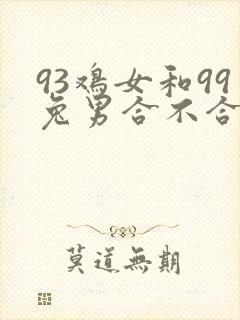 93鸡女和99
兔男合不合
莫道無期